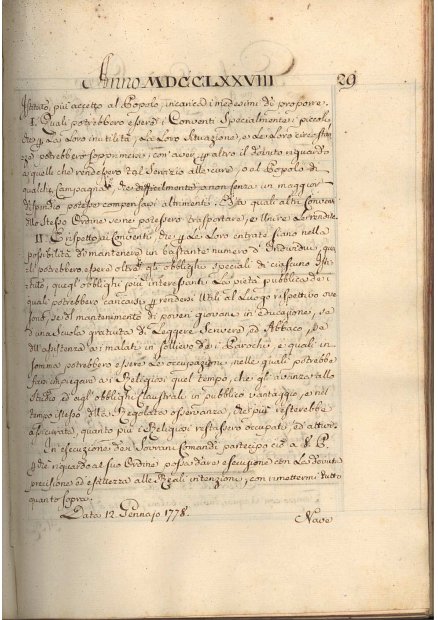 Anno MDCCLXXVIII 29
Istituto, più accetto al Popolo, incarica i medesimi di proporre.
I. Quali potrebbero essere i Conventi specialmente i piccoli,
che p. La Loro inutilità, La Loro Situazione, e Le Loro circostan-
ze potrebbero sopprimersi, con aver p. altro il dovuto riguardo
a quelli che rendessero del servizio alle cure, o al Popolo di
qualche Campagna, che difficilmente, o non senza un maggior
dispendio potesse compensarsi altrimenti. Ed a quali altri Conventi
dello Stesso Ordine se ne potessero trasportare, e Unire Le rendite.
II. E rispetto ai Conventi, che p. Le Loro entrate siano nella
possibilità di mantenere un bastante numero d'Individui, qua-
li potrebbero essere oltre gli obblighi speciali di ciascuno Isti-
tuto, quegl'obblighi più interessanti La pietà pubblica de i
quali potrebbero caricarsi p. rendersi Utili al Luogo rispettivo ove
sono, se di mantenimento di poveri giovani in educazione, se
d'una Scuola gratuita di Leggere Scrivere ed Abbaco, se
d'assistenza a i malati in sollievo de i Parochi, e quali in
somma potrebbero essere Le occupazioni, nelle quali potrebbe-
si impiegare a i Religiosi quel tempo, che gli avanza allo
Studio ed agl'obblighi Claustrali in pubblico vantaggio, e nel
tempo stesso della Regolata osservanza, che più resterebbe
assicurata, quanto più i Religiosi restassero occupati, ed attivi.
In esecuzione dei Sovrani Comandi partecipo ciò a V. P.
p. che riguardo al suo Ordine possa dare esecuzione con La dovuta
precisione ed esattezza alle Reali intenzioni, con rimettermi tutto
quanto sopra.
Data 12. Gennajo 1778.
Nave